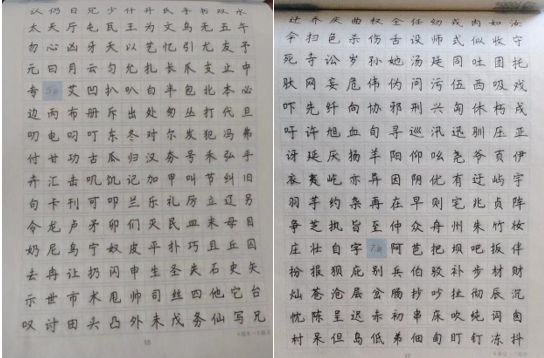 太天厅屯民王为文乌无五午
勿心凶牙天以艺忆引尤友予
元曰月云匀允扎长爪支止中
专 5画 艾凹扒叭白半包北本必
边丙布册斥出处匆丛打代旦
叨电叼叮东冬对尔发犯冯弗
付甘功古瓜归汉夯号禾弘乎
卉汇击叽饥记加甲叫节纠旧
句卡刊可叩兰乐礼厉立辽另
令龙卢矛卯们灭民皿末母目
奶尼鸟宁奴皮平扑巧且丘囚
去冉让扔闪申生圣失石史矢
示世市水甩帅司丝四他它台
叹讨田头凸外未戊务仙写兄
伞扫色杀伤舌设师式似收守
死寺讼岁孙她汤廷同吐团托
网妄危伟伪问污伍西吸戏
吓先纤向协邪刑兴匈休朽戌
吁许旭血旬寻巡汛迅驯压亚
讶延厌扬羊阳仰吆尧爷页伊
衣夷屹亦异因阴优有迂屿宇
羽芋约杂再在早则宅兆贞阵
争芝执旨至仲众舟州朱竹妆
庄壮自字 7画 阿芭把坝吧扳伴
扮报狈庇别兵伯驳补步材财
灿苍沧层岔肠抄吵扯彻辰沉
忱陈呈迟赤初串床吹纯词囱
村呆但岛低弟佃甸盯钉冻抖